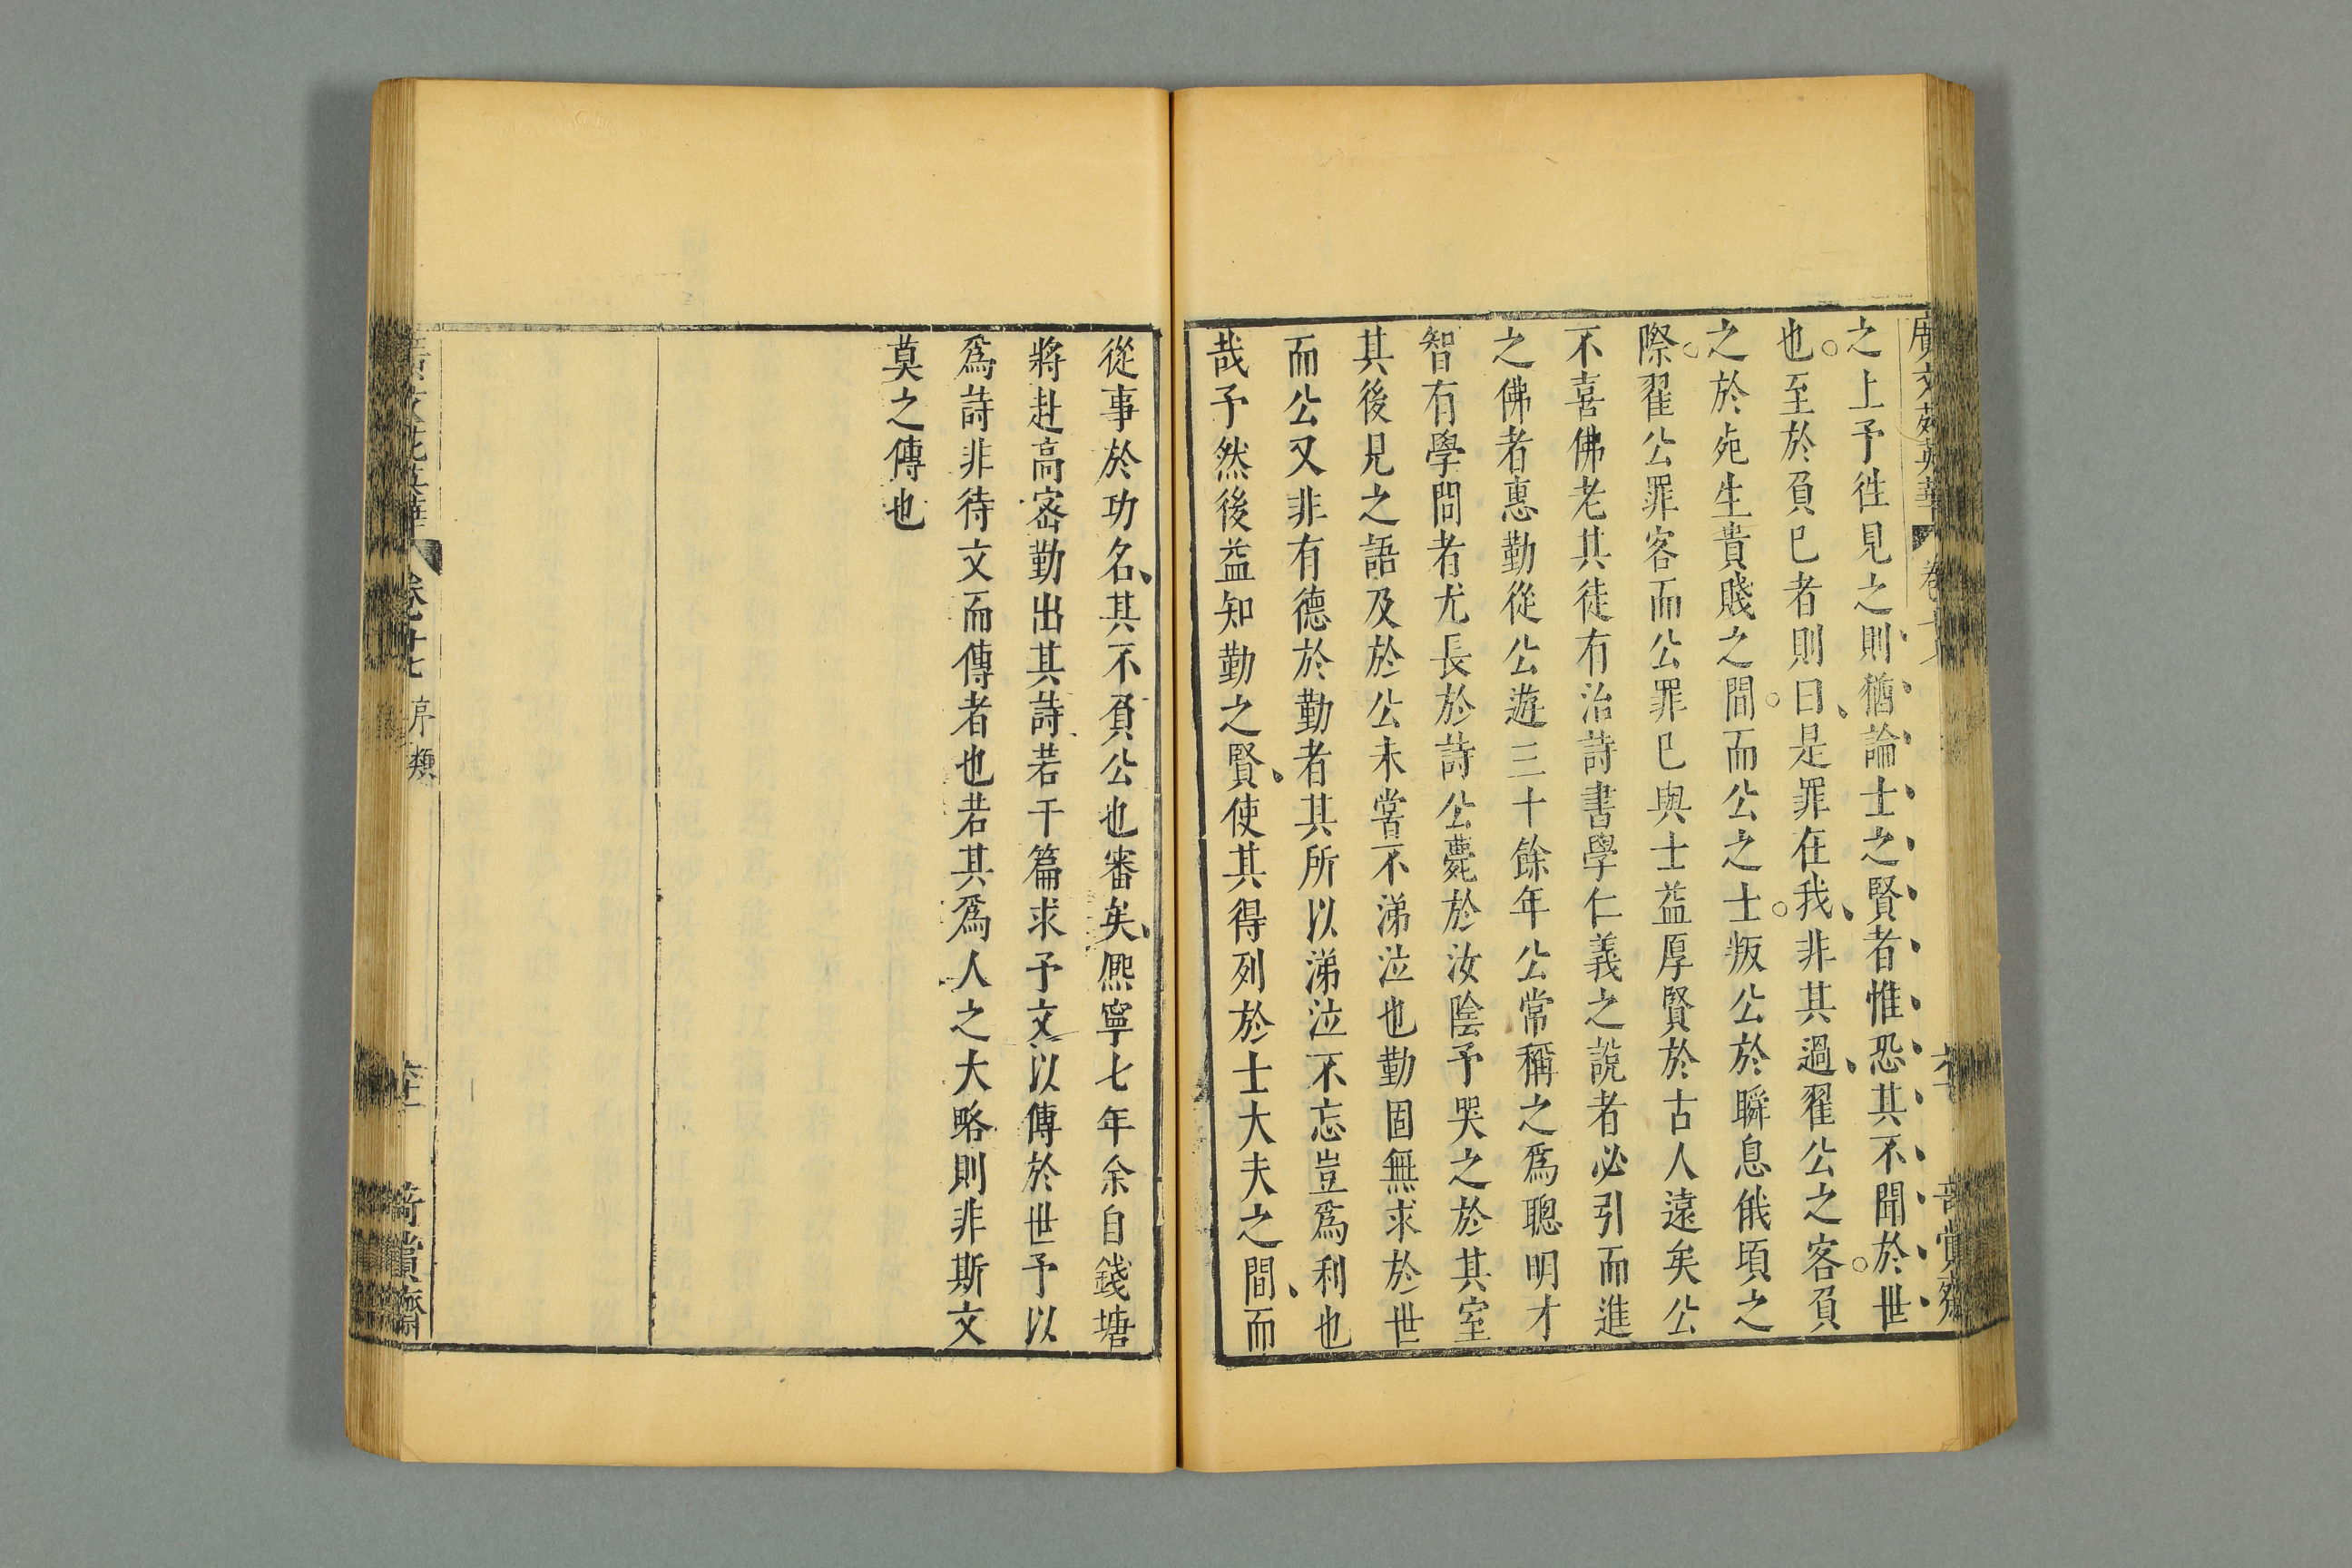 廣文苑英華
之上予徃見之則猶論士之賢者惟恐其不聞於世
也至於負巳者則曰是罪在我非其過翟公之客負
之於死生貴賤之間而公之士叛公於瞬息俄頃之
際翟公罪客而公罪巳與士益厚賢於古人遠矣公
不喜佛老其徒有治詩書學仁義之說者必引而進
之佛者惠勤從公遊三十餘年公常稱之爲聰明才
智有學問者尤長於詩公薨於汝陰予哭之於其室
其後見之語及於公未嘗不涕泣也勤固無求於世
而公又非有德於勤者其所以涕泣不忘豈爲利也
哉予然後益知勤之賢使其得列於士大夫之間而
從事於功名其不負公也審矣熈寧七年余自錢塘
將赴高密勤出其詩若干篇求予文以傳於世予以
爲詩非待文而傳者也若其爲人之大略則非斯文
莫之傳也
卷之十七 序類